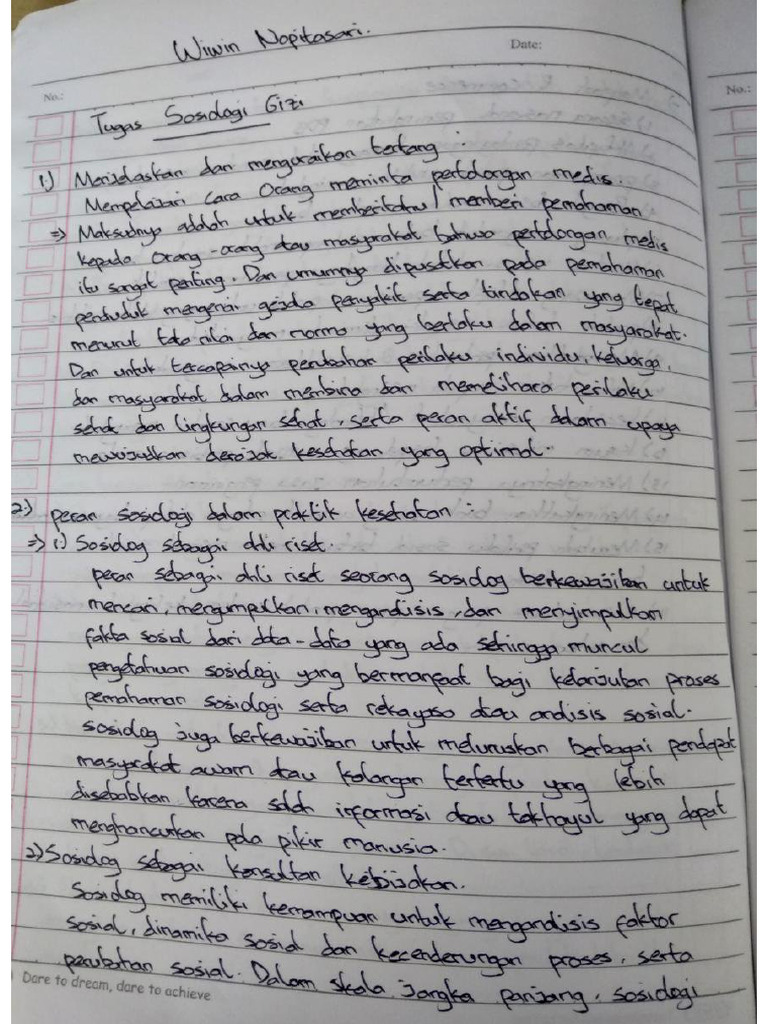 Wiwin Nopitasari.
Date:
No.:
No.:
Tugas Sosiologi Gizi
1.) Menjelaskan dan menguraikan tentang :
Mempelajari cara orang meminta pertolongan medis.
=> Maksudnya adalah untuk memberitahu / memberi pemahaman
kepada orang-orang atau masyarakat bahwa pertolongan medis
itu sangat penting. Dan umumnya dipusatkan pada pemahaman
penduduk mengenai gejala penyakit serta tindakan yang tepat
menurut tata nilai dan norma yang berlaku dalam masyarakat.
Dan untuk tercapainya perubahan perilaku individu, keluarga,
dan masyarakat dalam membina dan memelihara perilaku
sehat dan lingkungan sehat, serta peran aktif dalam upaya
mewujudkan derajat kesehatan yang optimal.
2.) peran sosiologi dalam praktik kesehatan :
=> 1.) Sosiolog sebagai ahli riset.
peran sebagai ahli riset seorang sosiolog berkewajiban untuk
mencari, mengumpulkan, menganalisis, dan menyimpulkan
fakta sosial dari data-data yang ada sehingga muncul
pengetahuan sosiologi yang bermanfaat bagi kelanjutan proses
pemahaman sosiologi serta rekayasa atau analisis sosial.
sosiolog juga berkewajiban untuk meluruskan berbagai pendapat
masyarakat awam atau kalangan tertentu yang lebih
disebabkan karena salah informasi atau takhayul yang dapat
menghancurkan pola pikir manusia.
2) Sosiolog sebagai konsultan kebijakan.
Sosiolog memiliki kemampuan untuk menganalisis faktor
sosial, dinamika sosial dan kecenderungan proses, serta
perubahan sosial. Dalam skala jangka panjang, sosiologi
Dare to dream, dare to achieve